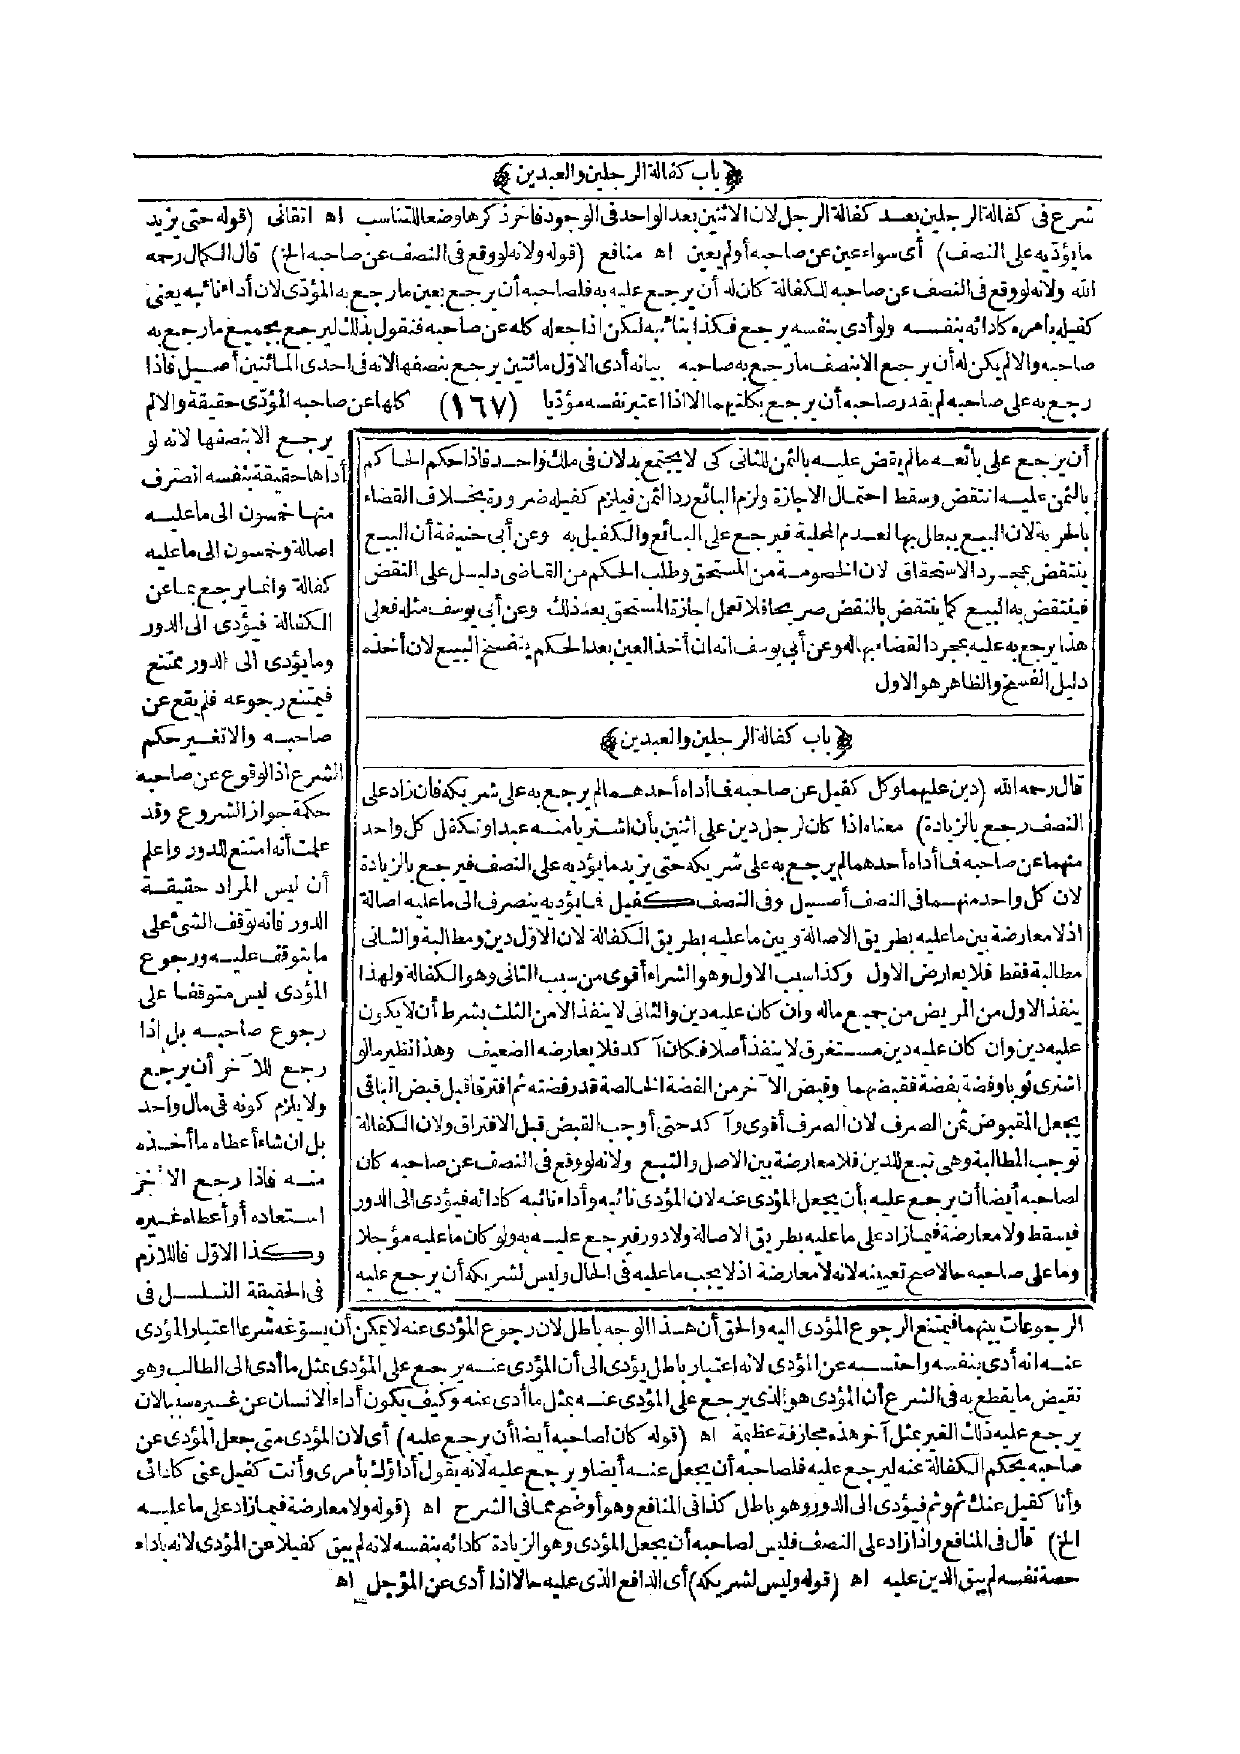 ﴿ باب كفالة الرجلين والعبدين ﴾
شرع فى كفالة الرجلين بعد كفالة الرجل لان الاثنين بعد الواحد فى الوجود فاخر ذكرها وضعا للتناسب اه اتقانى (قوله حتى يزيد
ما يؤديه على النصف) أى سواء عين عن صاحبه أولم يعين اه منافع (قوله ولانه لو وقع فى النصف عن صاحبه الخ) قال الكمال رحمه
الله ولانه لو وقع فى النصف عن صاحبه للكفالة كان له أن يرجع عليه به فلصاحبه أن يرجع بعين ما رجع به المؤدى لان أداء نائبه يعنى
كفيله بأمره كأدائه بنفسه ولو أدى بنفسه يرجع فكذا بنائبه لكن اذا جعله كله عن صاحبه فنقول بذلك ليرجع بجميع ما رجع به
صاحبه والا لم يكن له أن يرجع الا بنصف ما رجع به صاحبه بيانه أدى الاول مائتين يرجع بنصفها لانه فى احدى المائتين أصيل فاذا
رجع به على صاحبه لم يقدر صاحبه أن يرجع بكلتيهما الا اذا اعتبر نفسه مؤديا (١٦٧) كلها عن صاحبه المؤدى حقيقة والا لم
أن يرجع على بائعه ما لم يقض عليه بالثمن للثانى كى لا يجتمع بدلان فى ملك واحد فاذا حكم الحاكم
بالثمن عليه انتقض وسقط احتمال الاجازة ولزم البائع رد الثمن فيلزم كفيله ضرورة بخلاف القضاء
بالحرية لان البيع يبطل بها لعدم المحلية فيرجع على البائع والكفيل به وعن أبى حنيفة أن البيع
ينتقض بمجرد الاستحقاق لان الخصومة من المستحق وطلب الحكم من القاضى دليل على النقض
فينتقض به البيع كما ينتقض بالنقض صريحا فلا تعمل اجازة المستحق بعد ذلك وعن أبى يوسف مثله فعلى
هذا يرجع به عليه بمجرد القضاء بها له وعن أبى يوسف انه ان أخذ العين بعد الحكم ينفسخ البيع لان أخذه
دليل الفسخ والظاهر هو الاول
﴿ باب كفالة الرجلين والعبدين ﴾
قال رحمه الله (دين عليهما وكل كفيل عن صاحبه فما أداه أحدهما لم يرجع به على شريكه فان زاد على
النصف رجع بالزيادة) معناه اذا كان لرجل دين على اثنين بأن اشتريا منه عبدا وتكفل كل واحد
منهما عن صاحبه فما أداه أحدهما لم يرجع به على شريكه حتى يزيد ما يؤديه على النصف فيرجع بالزيادة
لان كل واحد منهما فى النصف أصيل وفى النصف كفيل فما يؤديه ينصرف الى ما عليه اصالة
اذ لا معارضة بين ما عليه بطريق الاصالة وبين ما عليه بطريق الكفالة لان الاول دين ومطالبة والثانى
مطالبة فقط فلا يعارض الاول وكذا سبب الاول وهو الشراء أقوى من سبب الثانى وهو الكفالة ولهذا
ينفذ الاول من المريض من جميع ماله وان كان عليه دين والثانى لا ينفذ الا من الثلث بشرط أن لا يكون
عليه دين وان كان عليه دين مستغرق لا ينفذ أصلا فكان آكد فلا يعارضه الضعيف وهذا نظير ما لو
اشترى ثوبا وفضة بفضة فقبضهما وقبض الآخر من الفضة الخالصة قدر فضته ثم افترقا قبل قبض الباقى
يجعل المقبوض ثمن الصرف لان الصرف أقوى وآكد حتى أوجب القبض قبل الافتراق ولان الكفالة
توجب المطالبة وهى تبع للدين فلا معارضة بين الاصل والتبع ولانه لو وقع فى النصف عن صاحبه كان
لصاحبه أيضا أن يرجع عليه بأن يجعل المؤدى عنه لان المؤدى نائبه وأداء نائبه كأدائه فيؤدى الى الدور
فيسقط ولا معارضة فيما زاد على ما عليه بطريق الاصالة ولا دور فيرجع عليه به ولو كان ما عليه مؤجلا
وما على صاحبه حالا صح تعيينه لانه لا معارضة اذ لا يجب ما عليه فى الحال وليس لشريكه أن يرجع عليه
يرجع الا بنصفها لانه لو
أداها حقيقة بنفسه انصرف
منها خمسون الى ما عليه
اصالة وخمسون الى ما عليه
كفالة وانما يرجع بما عن
الكفالة فيؤدى الى الدور
وما يؤدى الى الدور ممتنع
فيمتنع رجوعه فلم يقع عن
صاحبه والا تغير حكم
الشرع اذ الوقوع عن صاحبه
حكمة جواز الشروع وقد
علمت أنه امتنع للدور واعلم
أن ليس المراد حقيقة
الدور فانه توقف الشئ على
ما يتوقف عليه ورجوع
المؤدى ليس متوقفا على
رجوع صاحبه بل اذا
رجع للآخر أن يرجع
ولا يلزم كونه فى مال واحد
بل ان شاء أعطاه ما أخذه
منه فاذا رجع الآخر
استعاده أو أعطاه غيره
وكذا الاول فاللازم
فى الحقيقة التسلسل فى
الرجوعات بينهما فيمتنع الرجوع المؤدى اليه والحق أن هذا الوجه باطل لان رجوع المؤدى عنه لا يمكن أن يسوغه شرعا اعتبار المؤدى
عنه انه أدى بنفسه واحتسبه عن المؤدى لانه اعتبار باطل يؤدى الى أن المؤدى عنه يرجع على المؤدى بمثل ما أدى الى الطالب وهو
نقيض ما يقطع به فى الشرع أن المؤدى هو الذى يرجع على المؤدى عنه بمثل ما أدى عنه وكيف يكون أداء الانسان عن غيره سببا لان
يرجع عليه ذلك الغير بمثل آخر هذه مجازفة عظيمة اه (قوله كان لصاحبه أيضا أن يرجع عليه) أى لان المؤدى متى جعل المؤدى عن
صاحبه بحكم الكفالة عنه ليرجع عليه فلصاحبه أن يجعل عنه أيضا ويرجع عليه لانه يقول أداؤك بأمرى وأنت كفيل عنى كأدائى
وأنا كفيل عنك ثم وثم فيؤدى الى الدور وهو باطل كذا فى المنافع وهو أوضح مما فى الشرح اه (قوله ولا معارضة فيما زاد على ما عليه
الخ) قال فى المنافع واذا زاد على النصف فليس لصاحبه أن يجعل المؤدى وهو الزيادة كأدائه بنفسه لانه لم يبق كفيلا عن المؤدى لانه بأداء
حصة نفسه لم يبق الدين عليه اه (قوله وليس لشريكه) أى الدافع الذى عليه حالا اذا أدى عن المؤجل اه